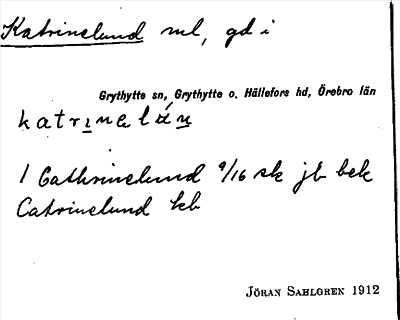 Katrinelund ml, gd i
Grythytte sn, Grythytte o. Hällefors hd, Örebro län
katrinelún
1 Cathrinelund 9/16 sk jb bek
Catrinelund kb
JÖRAN SAHLGREN 1912